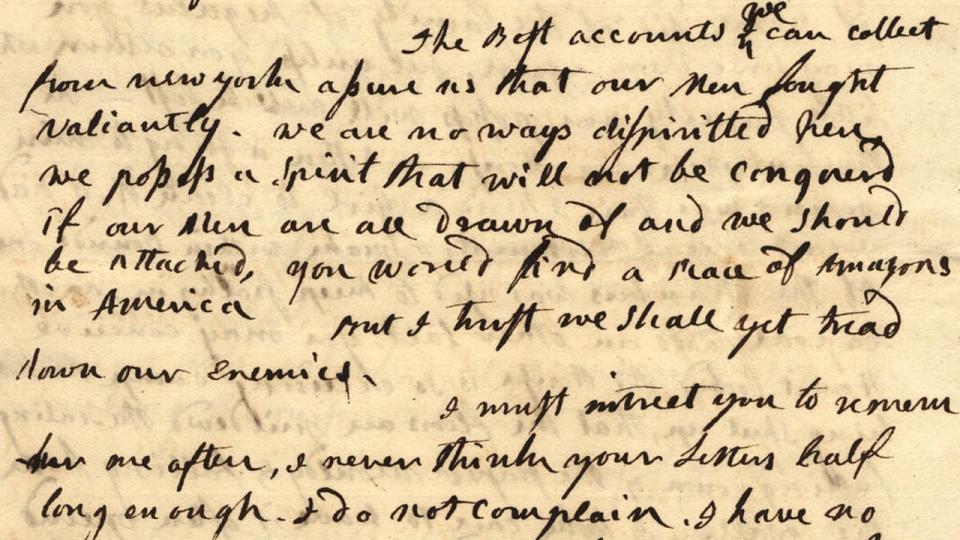 The Best accounts we can collect
from new york assure us that our Men fought
valiantly. we are no ways dispiritted here,
we possess a Spirit that will not be conquerd
If our Men are all drawn of and we should
be Attacked, you would find a Race of Amazons
in America But I trust we shall yet tread
down our Enemies.
I must intreet you to remem
ber me often, I never think your Letters half
long enough. I do not complain. I have no